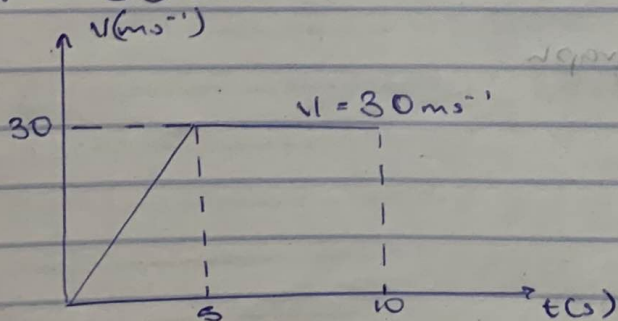 V(ms⁻¹)
30
V = 30ms⁻¹
5
10
t(s)